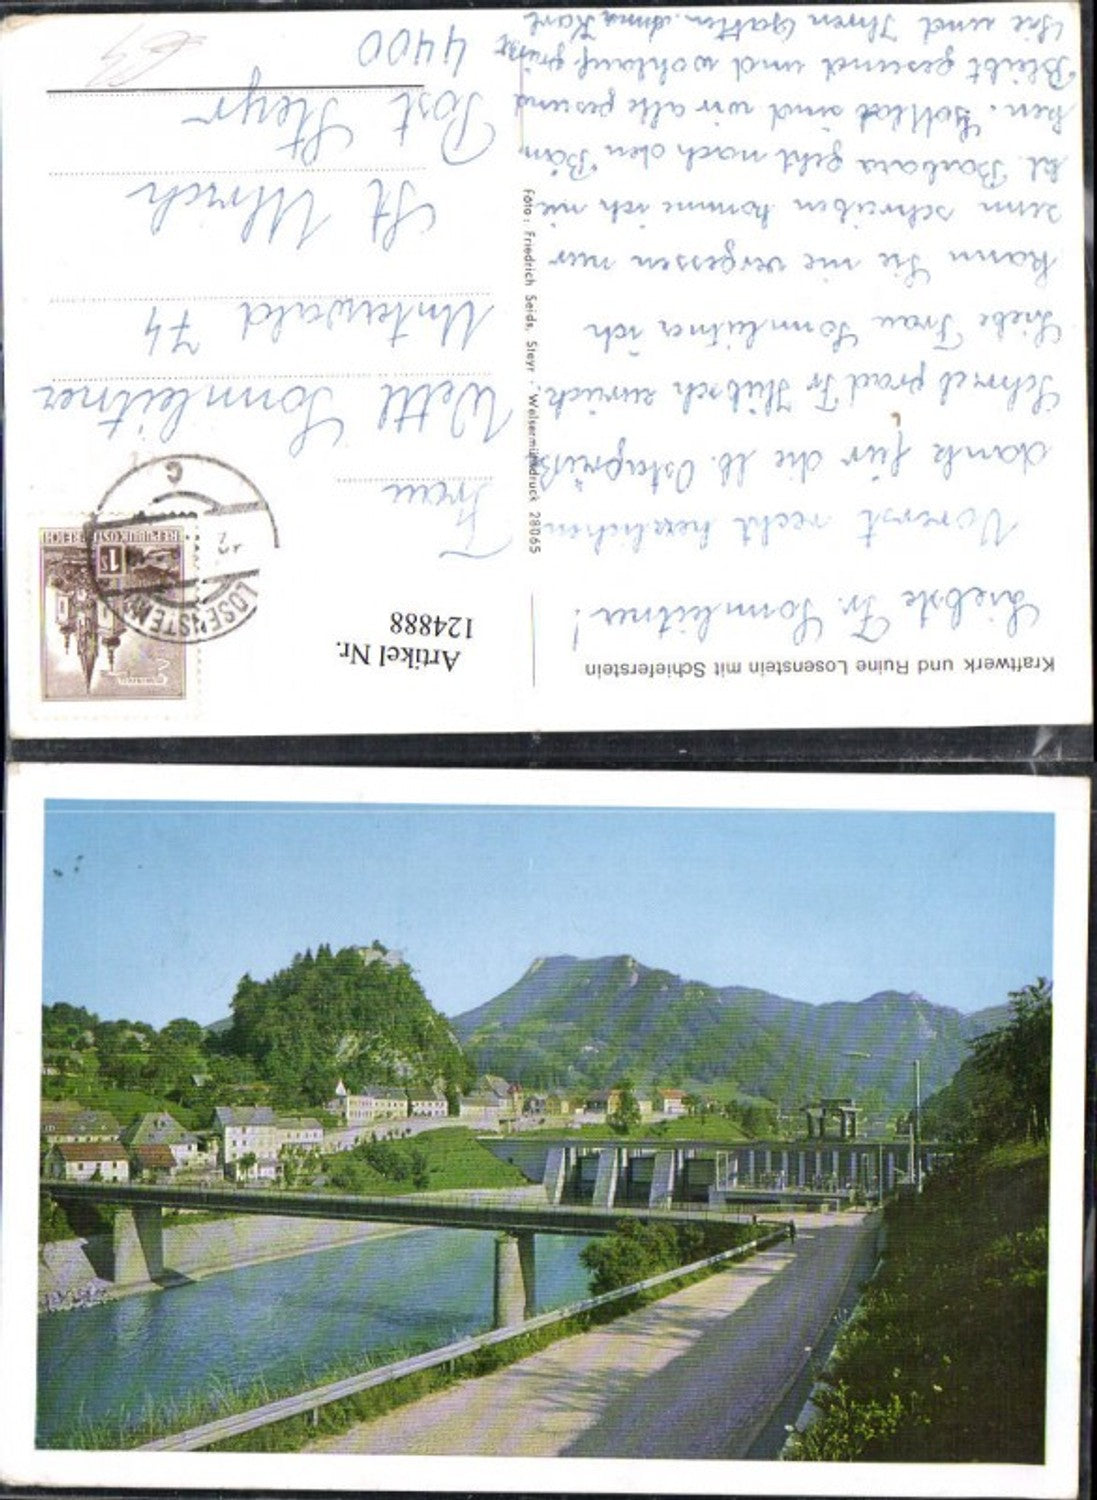 Kraftwerk und Ruine Losenstein mit Schieferstein
Liebste Fr. Sonnleitner!
Vorerst recht herzlichen
dank für die lb. Ostergrüße
Schrieb grad Fr Hübsch zurück
Liebe Frau Sonnleitner ich
kann Sie nie vergessen nur
zum schreiben komme ich nie
kl. Barbara geht nach den Bän
ken. Gottlob sind wir alle gesund
Bleibt gesund und wohlauf grüßt
Sie und Ihren Gatten. Anna Karl
Foto: Friedrich Seids, Steyr. Welsermühldruck 28065
Artikel Nr.
124888
LOSENSTEIN
C
REPUBLIK ÖSTERREICH
1 S
Frau
Wettl Sonnleitner
Unterwald 74
St Ulrich
Post Steyr
4400